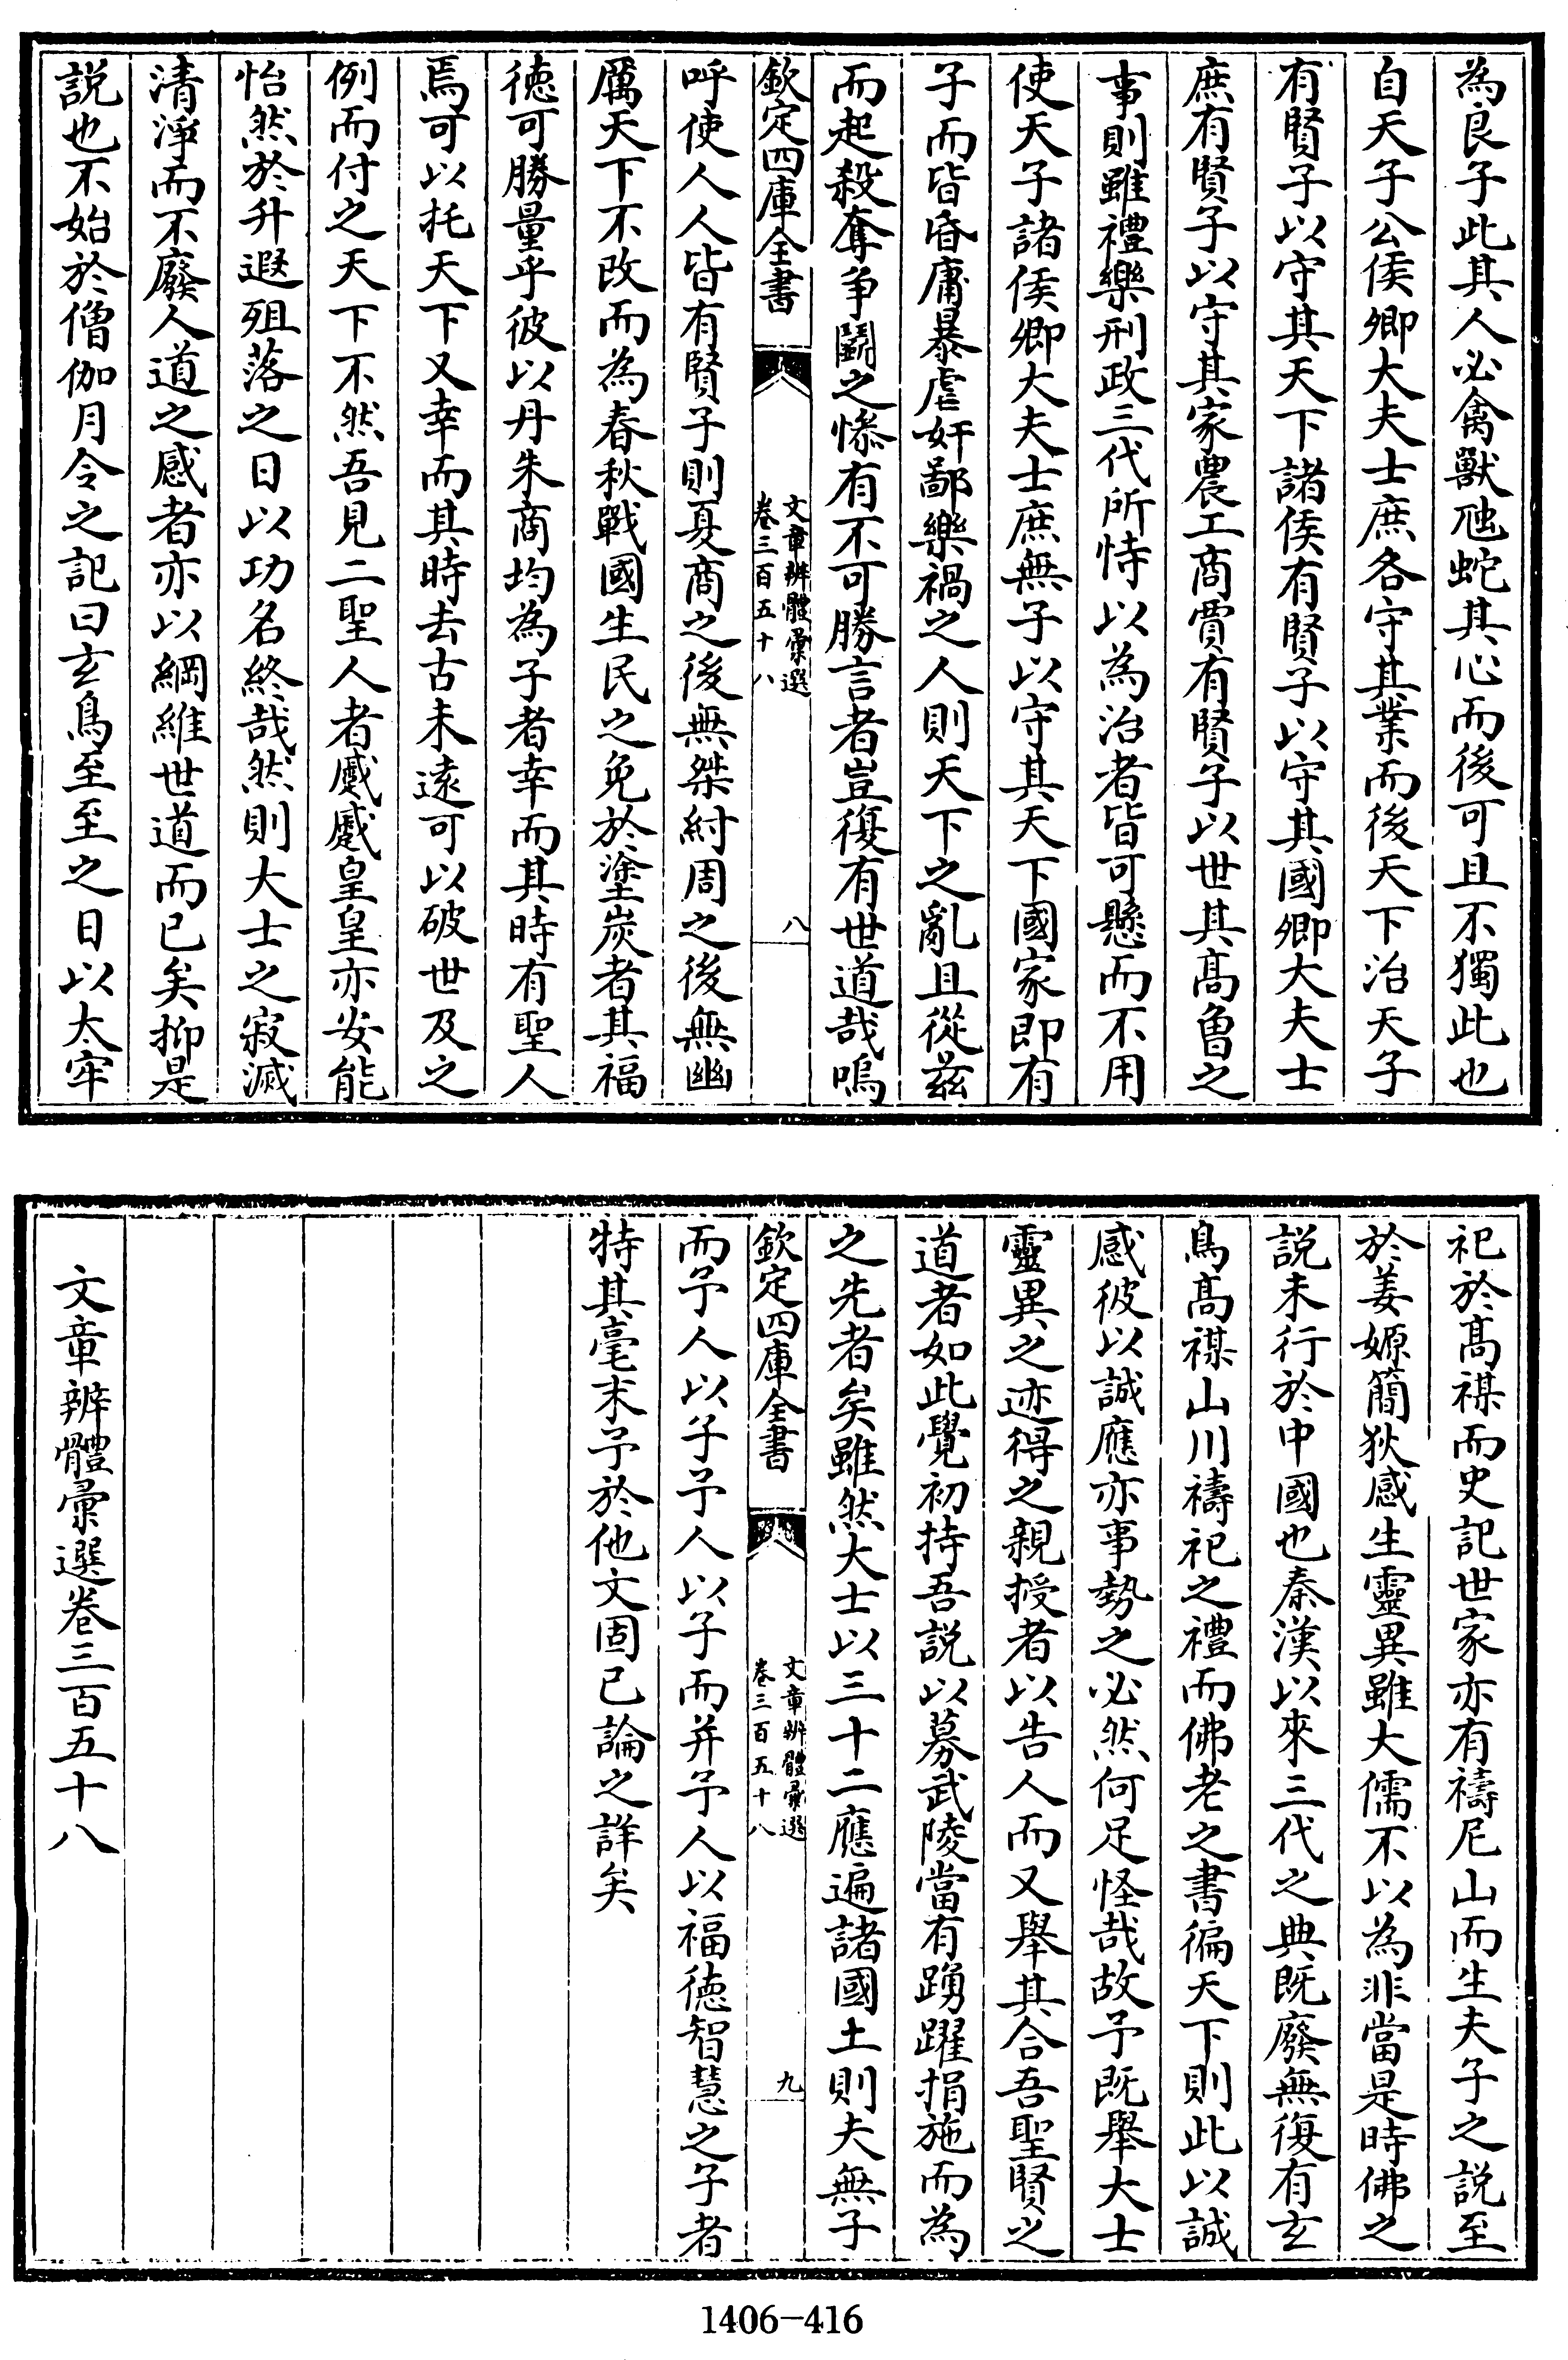 為良子此其人必禽獸虺蛇其心而後可且不獨此也
自天子公侯卿大夫士庶各守其業而後天下治天子
有賢子以守其天下諸侯有賢子以守其國卿大夫士
庶有賢子以守其家農工商賈有賢子以世其髙曽之
事則雖禮樂刑政三代所恃以為治者皆可懸而不用
使天子諸侯卿大夫士庶無子以守其天下國家即有
子而皆昏庸暴虐奸鄙樂禍之人則天下之亂且從兹
而起殺奪争鬭之慘有不可勝言者豈復有世道哉嗚
欽定四庫全書
文章辨體彚選
卷三百五十八
八
呼使人人皆有賢子則夏商之後無桀紂周之後無幽
厲天下不改而為春秋戰國生民之免於塗炭者其福
徳可勝量乎彼以丹朱商均為子者幸而其時有聖人
焉可以托天下又幸而其時去古未遠可以破世及之
例而付之天下不然吾見二聖人者慼慼皇皇亦安能
怡然於升遐殂落之日以功名終哉然則大士之寂滅
清淨而不廢人道之感者亦以綱維世道而已矣抑是
說也不始於僧伽月令之記曰玄鳥至至之日以太牢
祀於髙禖而史記世家亦有禱尼山而生夫子之說至
於姜嫄簡狄感生靈異雖大儒不以為非當是時佛之
說未行於中國也秦漢以來三代之典既廢無復有玄
鳥髙禖山川禱祀之禮而佛老之書徧天下則此以誠
感彼以誠應亦事勢之必然何足怪哉故予既舉大士
靈異之迹得之親授者以告人而又舉其合吾聖賢之
道者如此覺初持吾說以募武陵當有踴躍捐施而為
之先者矣雖然大士以三十二應遍諸國土則夫無子
欽定四庫全書
文章辨體彚選
卷三百五十八
九
而予人以子予人以子而并予人以福徳智慧之子者
特其毫末予於他文固已論之詳矣
文章辨體彚選卷三百五十八
1406-416